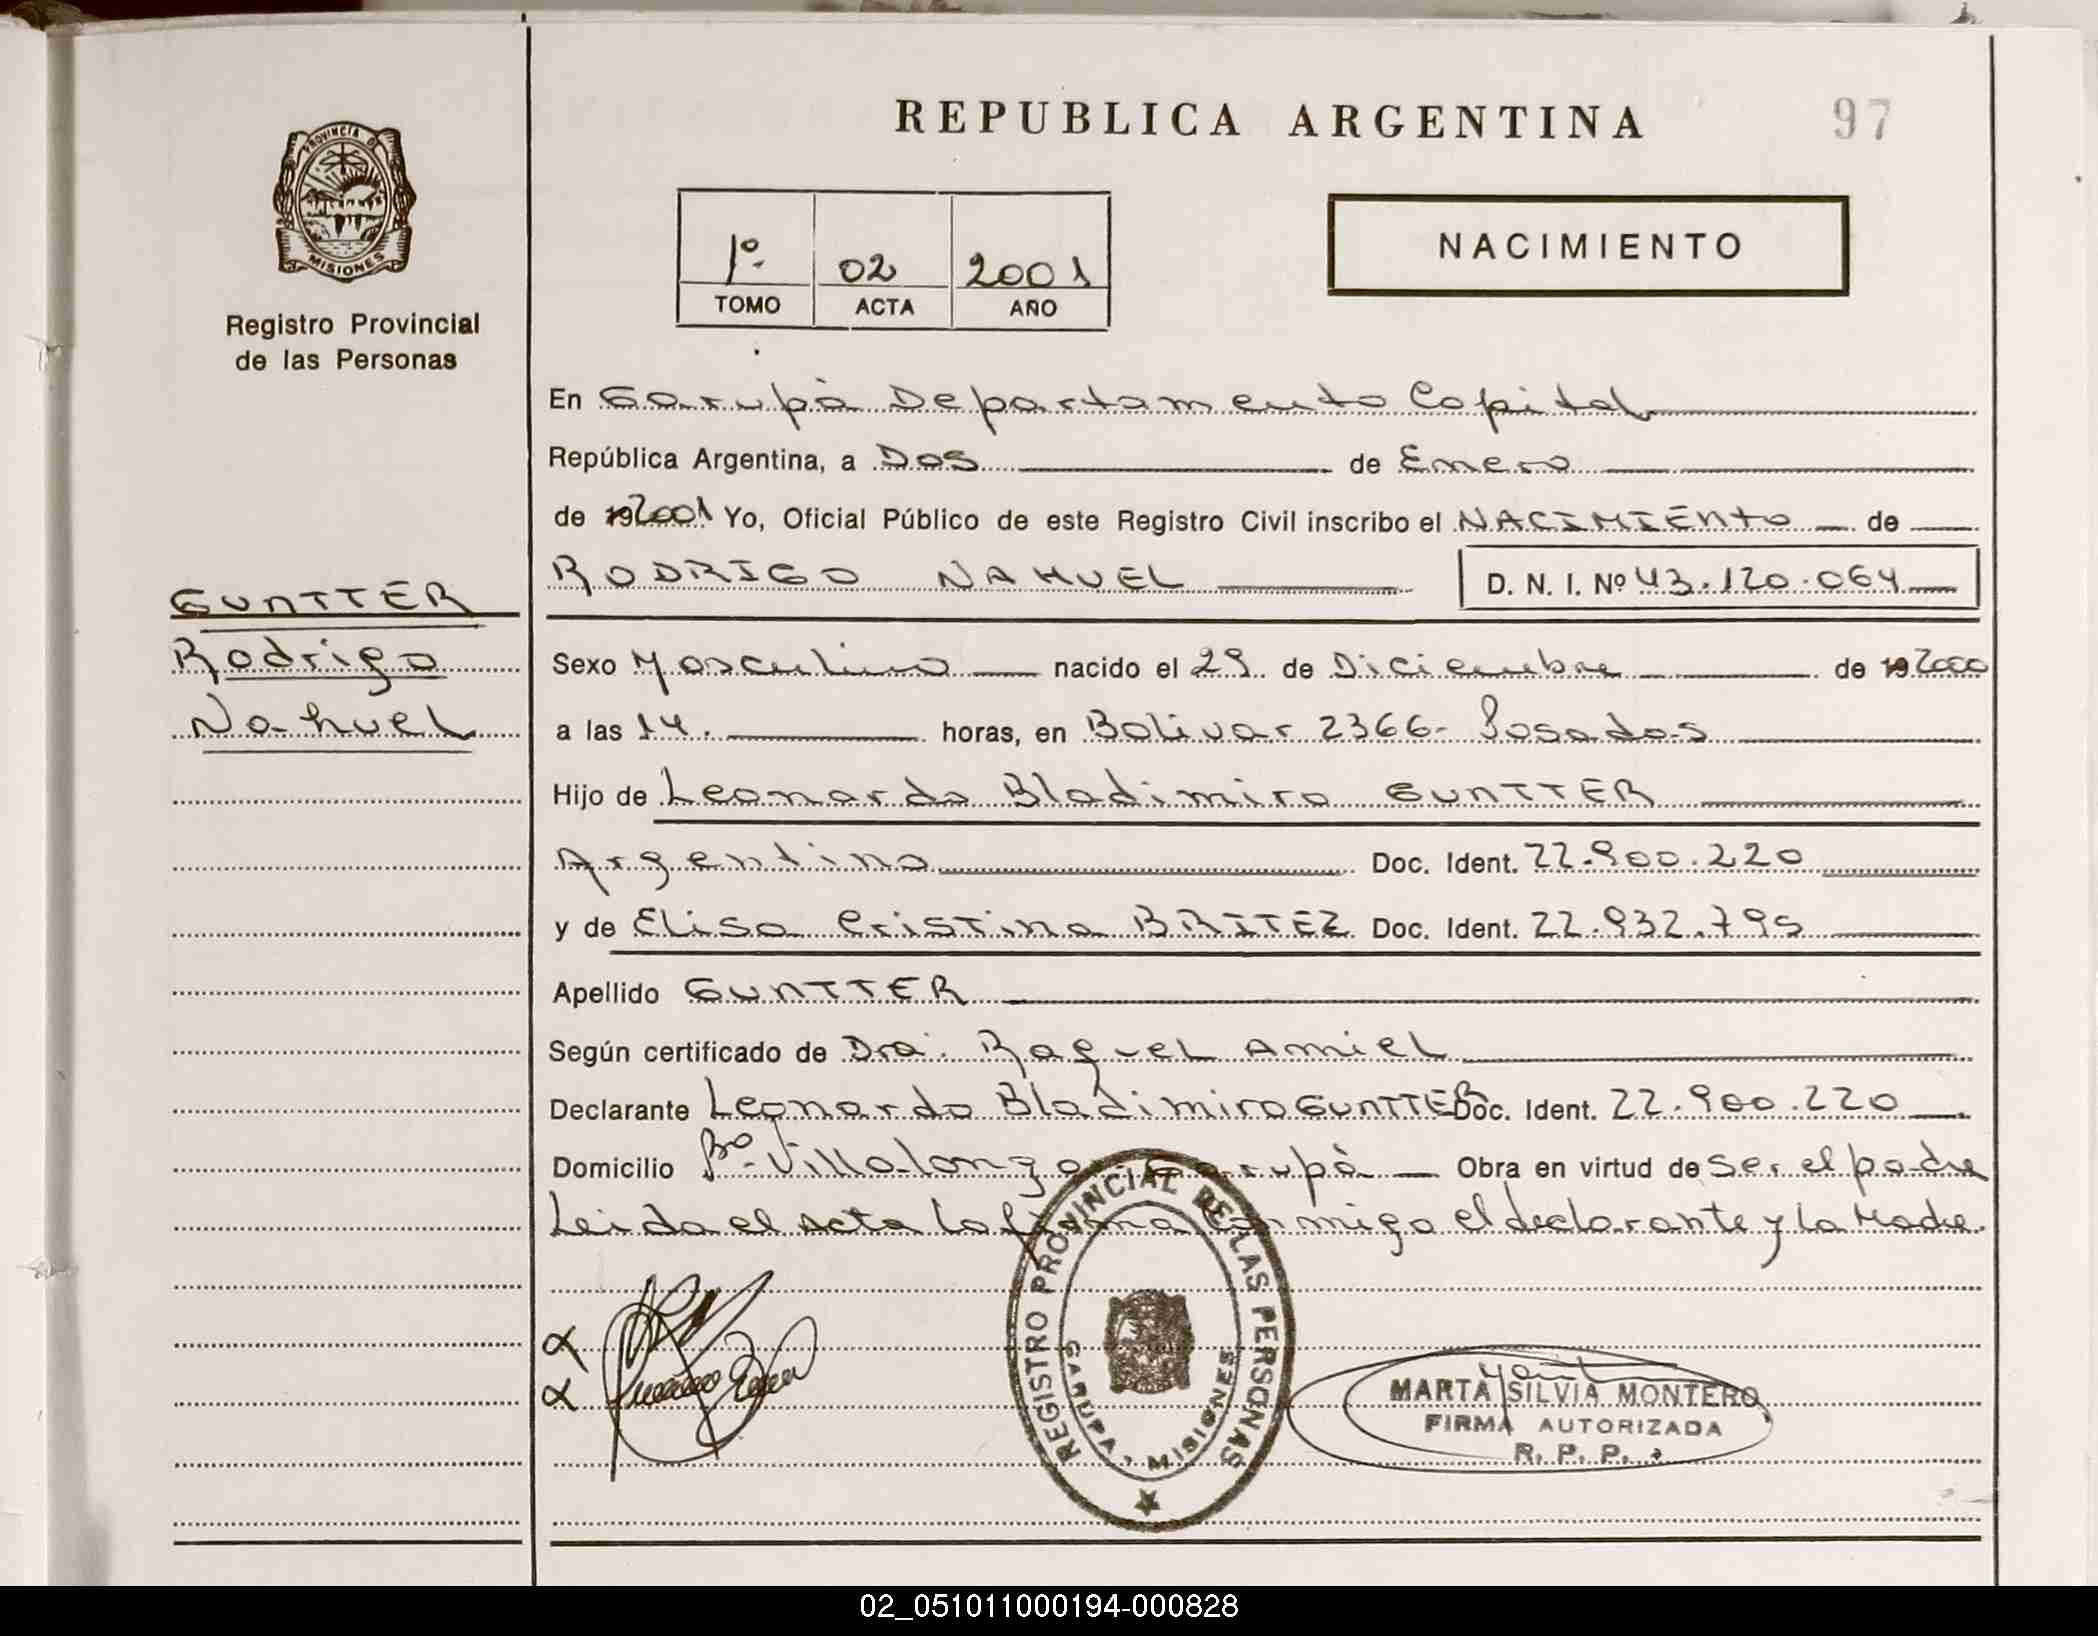 REPUBLICA ARGENTINA
97
PROVINCIA DE
MISIONES
Registro Provincial
de las Personas
1º
02
2001
TOMO
ACTA
AÑO
NACIMIENTO
En Garupà Departamento Capital
República Argentina, a Dos de Enero
de 192001 Yo, Oficial Público de este Registro Civil inscribo el NACIMIENTO de
RODRIGO NAHUEL
D. N. I. Nº 43.120.064
GUNTTER
Rodrigo
Nahuel
Sexo Masculino nacido el 29 de Diciembre de 192000
a las 14. horas, en Bolivar 2366- Posadas
Hijo de Leonardo Bladimiro GUNTTER
Argentino Doc. Ident. 22.900.220
y de Elisa Cristina BRITEZ Doc. Ident. 22.932.795
Apellido GUNTTER
Según certificado de Dra. Raquel Amiel
Declarante Leonardo Bladimiro GUNTTER Doc. Ident. 22.900.220
Domicilio Bº Villalonga Garupà Obra en virtud de ser el padre
Leida el Acta la firma conmigo el declarante y la Madre.
REGISTRO PROVINCIAL DE LAS PERSONAS
GARUPA, MISIONES
MARTA SILVIA MONTERO
FIRMA AUTORIZADA
R. P. P.
02_051011000194-000828